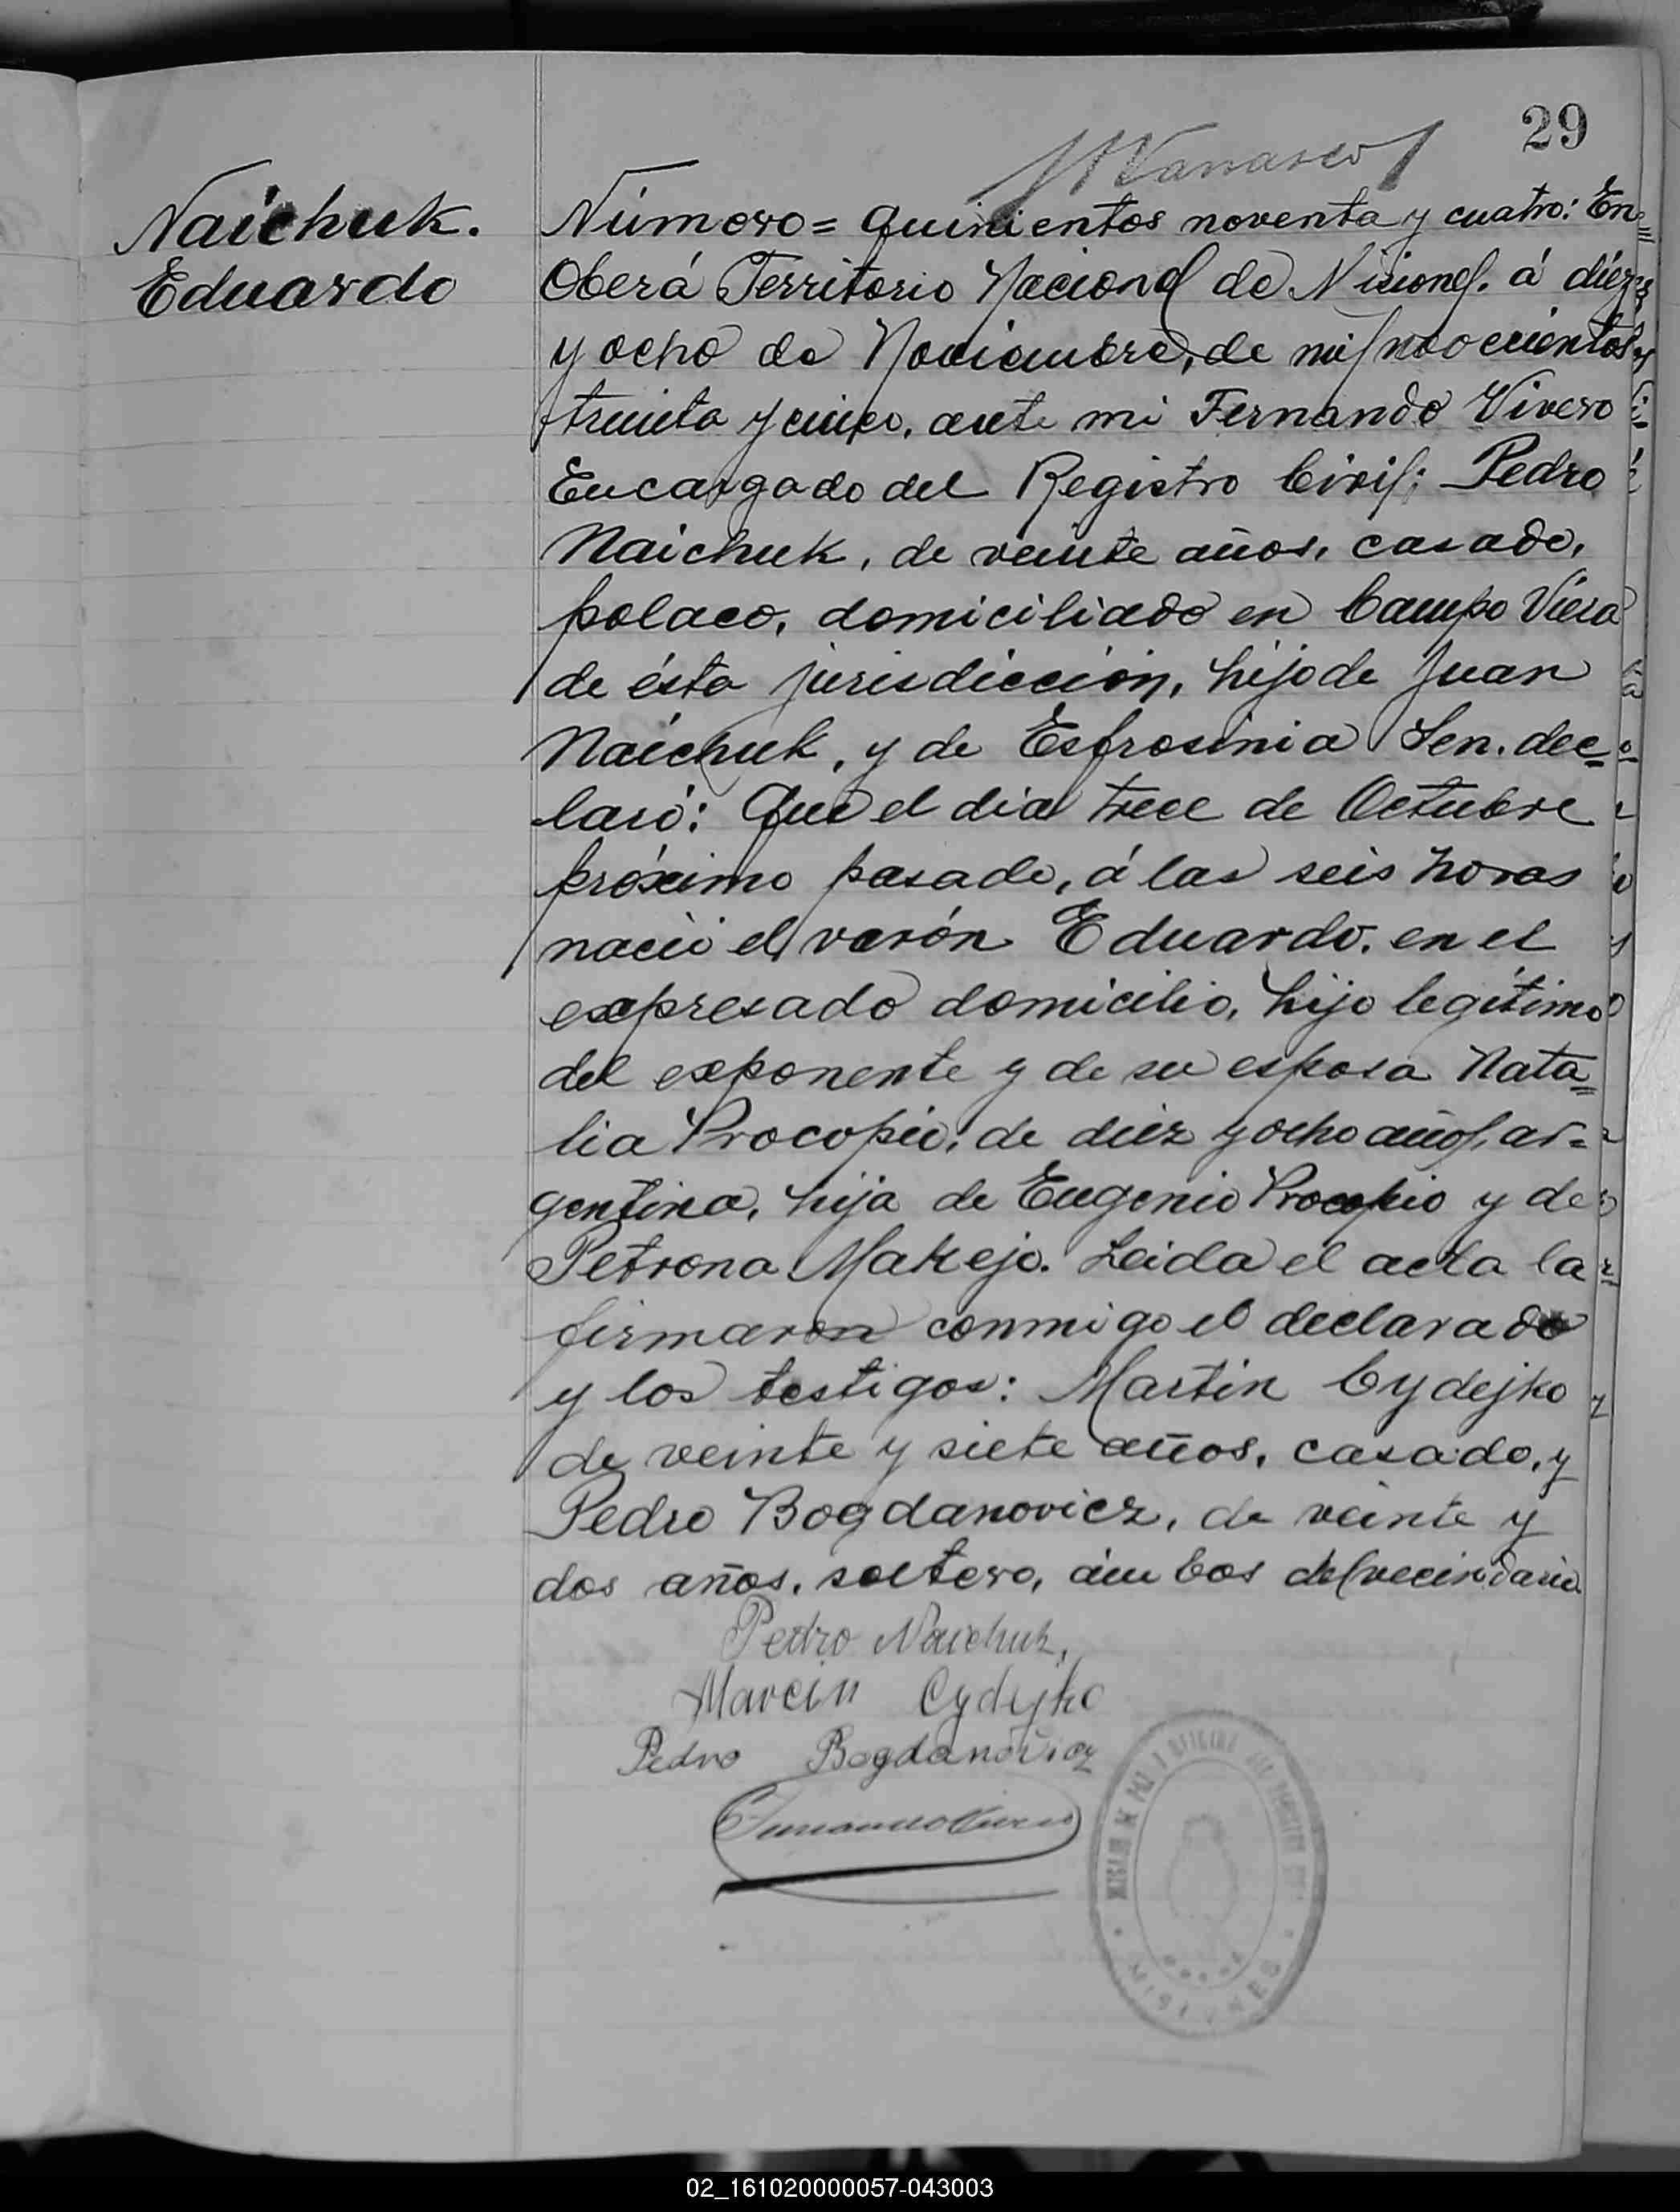 29
Naichuk.
Eduardo
Número= quinientos noventa y cuatro: En=
Oberá Territorio Nacional de Misiones. á diez
y ocho de Noviembre, de mil novecientos
treinta y cinco, ante mi Fernando Vivero
Encargado del Registro Civil; Pedro
Naichuk, de veinte años, casado,
polaco, domiciliado en Campo Viera
de ésta jurisdicción, hijo de Juan
Naichuk, y de Esfrosinia Sen. dec=
laró: Que el dia trece de Octubre
próximo pasado, á las seis horas
nació el varón Eduardo. en el
expresado domicilio, hijo legítimo
del exponente y de su esposa Nata=
lia Procopio, de diez y ocho años, ar=
gentina, hija de Eugenio Procopio y de
Petrona Makejo. Leida el acta la
firmaron conmigo el declarado
y los testigos: Martin Cydejko
de veinte y siete años, casado, y
Pedro Bogdanovicz, de veinte y
dos años, soltero, ámbos del vecindario
Pedro Naichuk,
Marcin Cydejko
Pedro Bogdanovicz
Fernando Vivero
MISIONES
02_161020000057-043003